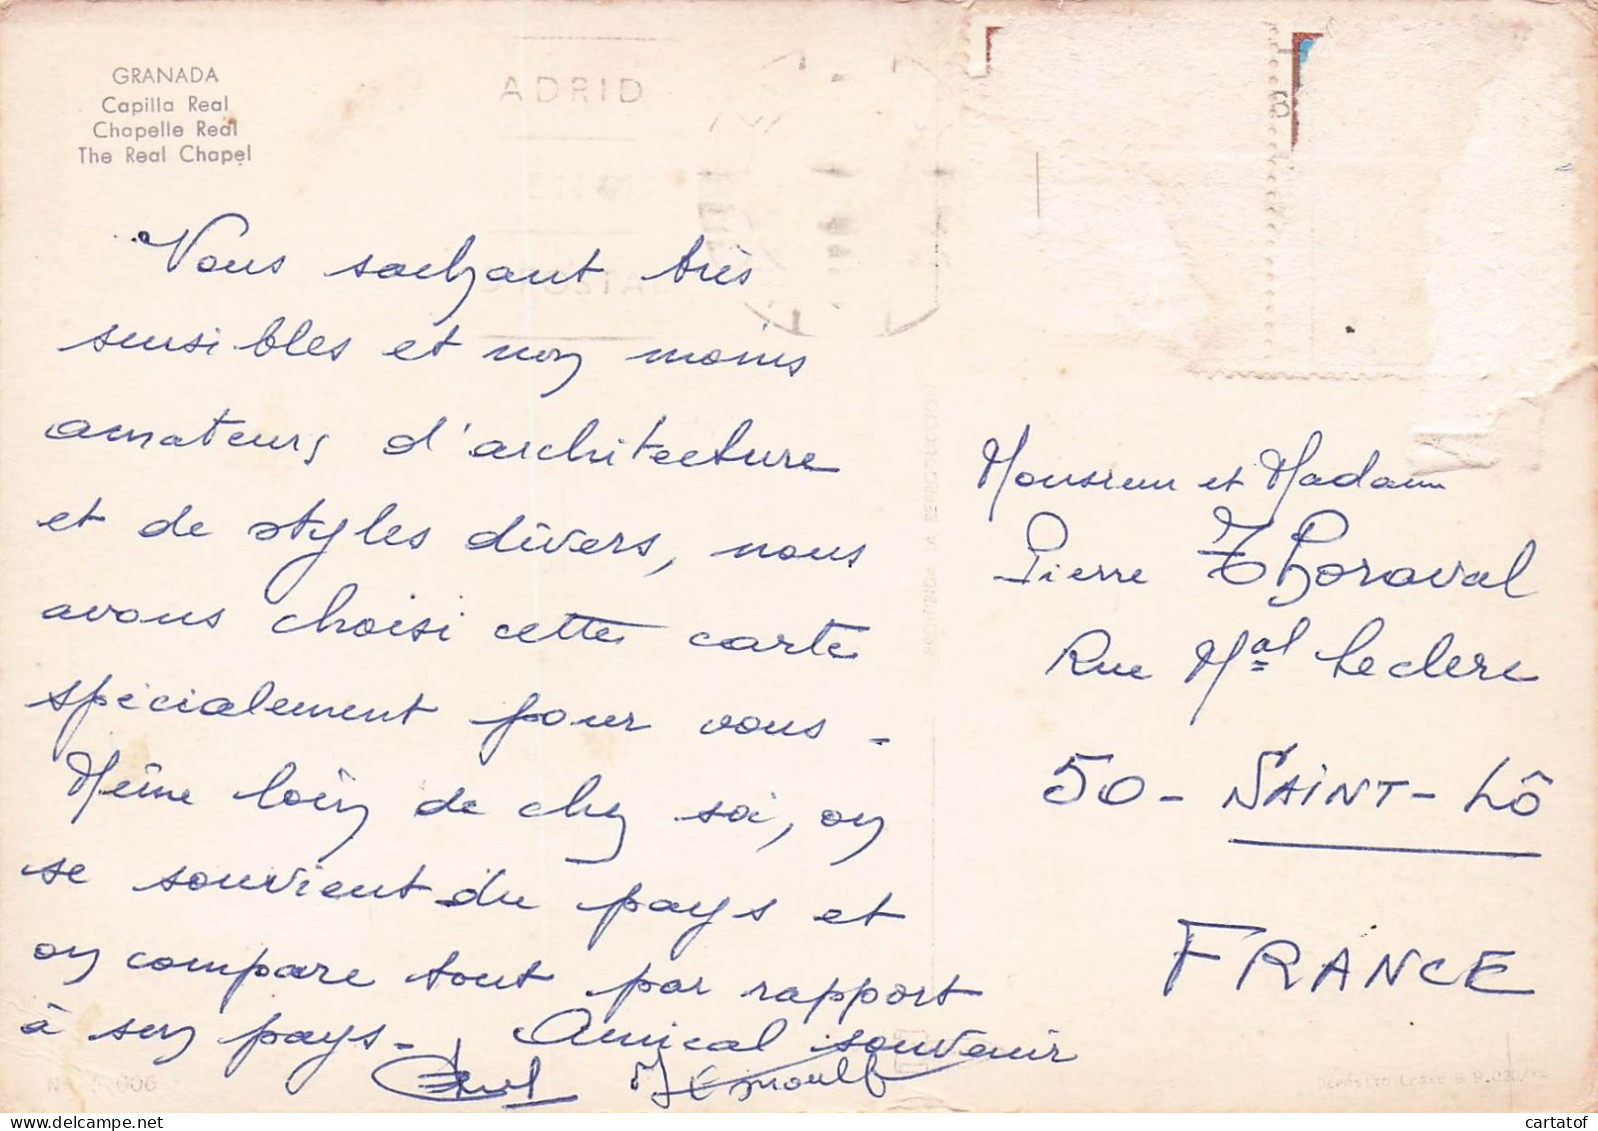 GRANADA
Capilla Real
Chapelle Real
The Real Chapel
ADRID
POSTAL
Vous sachant très
sensibles et non moins
amateurs d'architecture
et de styles divers, nous
avons choisi cette carte
spécialement pour vous -
Même loin de chez soi, on
se souvient du pays et
on compare tout par rapport
à son pays - Amical souvenir
PROHIBIDA LA REPRODUCCION
Monsieur et Madame
Pierre Thoraval
Rue Mal Leclerc
50 - SAINT-LÔ
FRANCE
DEPÓSITO LEGAL B 9.020/
cartatof